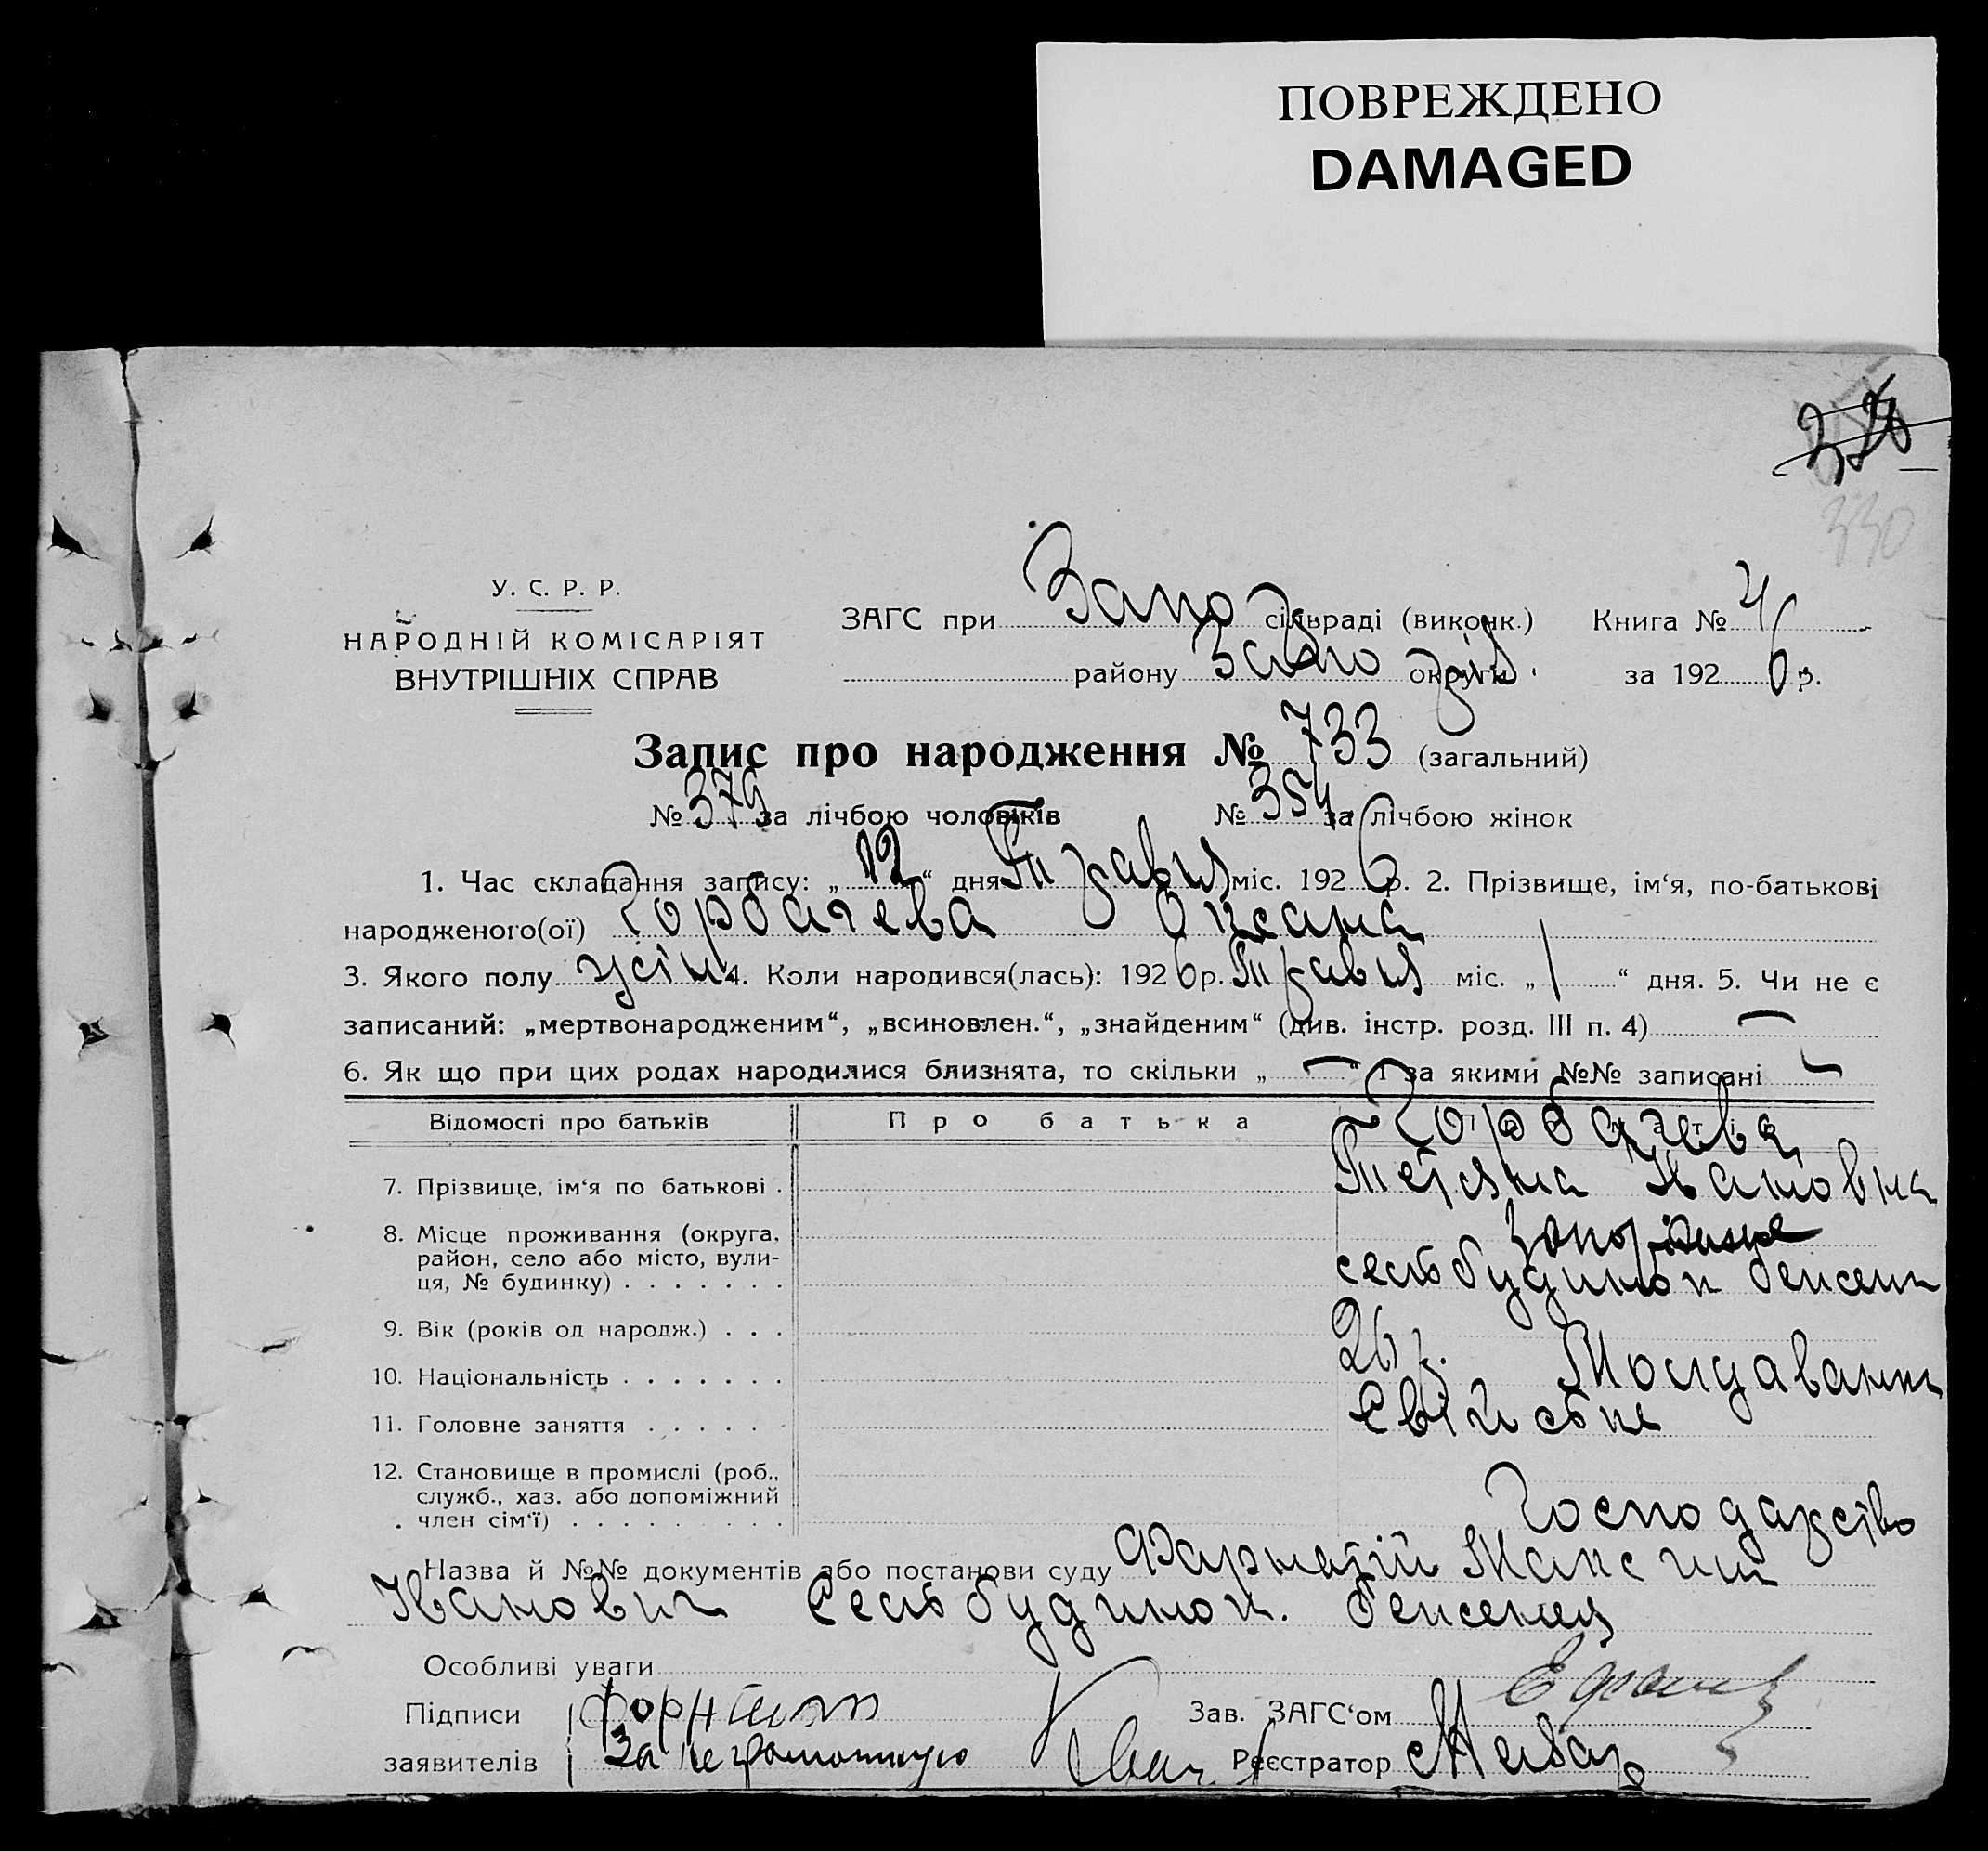 ПОВРЕЖДЕНО
DAMAGED
330
У. С. Р. Р.
НАРОДНІЙ КОМІСАРІЯТ
ВНУТРІШНІХ СПРАВ
ЗАГС при Запо сільраді (виконк.) Книга № 4
району Запо округи за 1926 р.
Запис про народження № 733 (загальний)
№ 379 за лічбою чоловіків № 354 за лічбою жінок
1. Час складання запису: „12“ дня Травня міс. 1926 р. 2. Прізвище, ім‘я, по-батькові
народженого(ої) Горбачева Оксана
3. Якого полу жін 4. Коли народився(лась): 1926 р. Травня міс. „1“ дня. 5. Чи не є
записаний: „мертвонародженим“, „всиновлен.“, „знайденим“ (див. інстр. розд. III п. 4) —
6. Як що при цих родах народилися близнята, то скільки „—“ і за якими №№ записані —
Відомості про батьків Про батька
Горбачева
7. Прізвище, ім‘я по батькові . Тетяна Івановна
8. Місце проживання (округа, район, село або місто, вулиця, № будинку) . . . . . . . сельбудинок
9. Вік (років од народж.) . . . 26 р.
10. Національність . . . . . . . Молдаванк
11. Головне заняття . . . . . . Свійське
12. Становище в промислі (роб.,
служб., хаз. або допоміжний
член сім‘ї) . . . . . . . . . Господарство
Назва й №№ документів або постанови суду Максим
Иванович Сельбудинок.
Особливі уваги
Підписи
Зав. ЗАГС‘ом
заявителів За неграмотную
Реєстратор